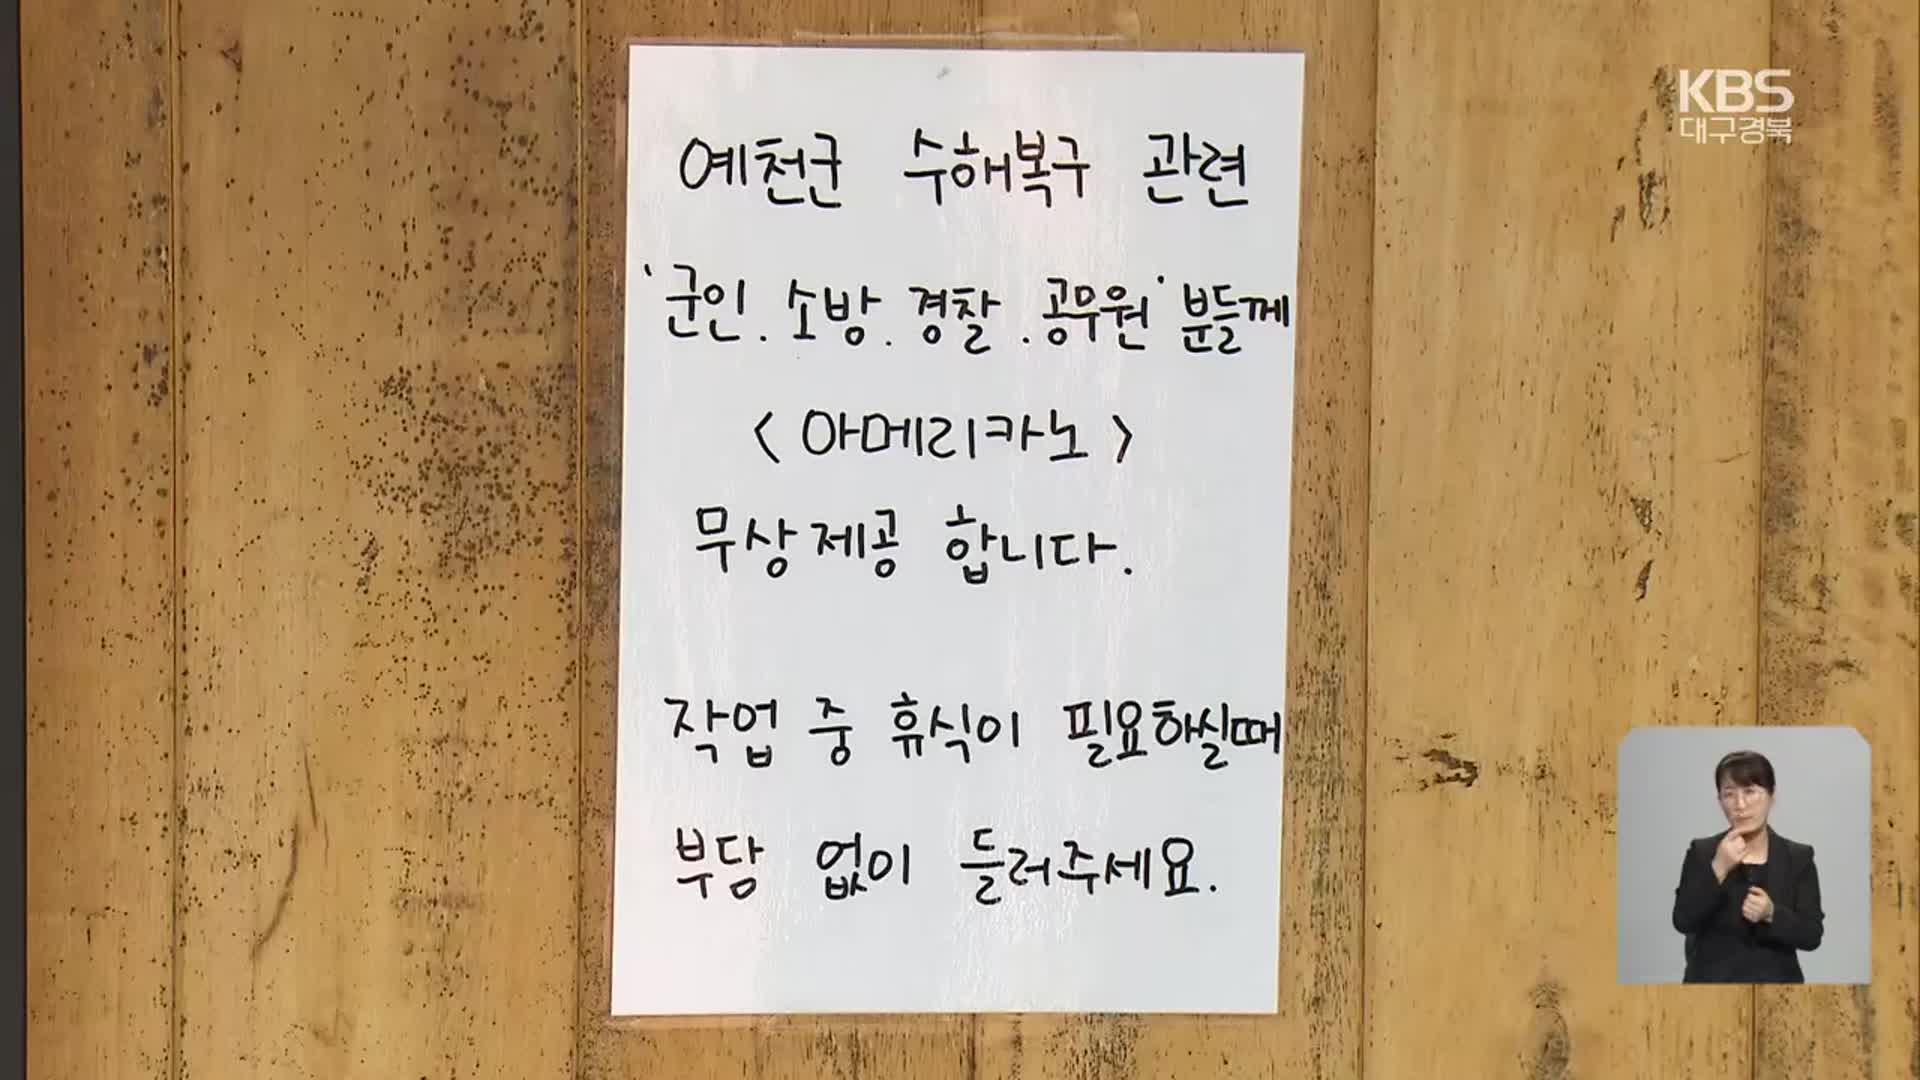 KBS
대구경북
예천군 수해복구 관련
'군인. 소방. 경찰. 공무원' 분들께
<아메리카노>
무상제공 합니다.
작업 중 휴식이 필요하실때
부담 없이 들러주세요.